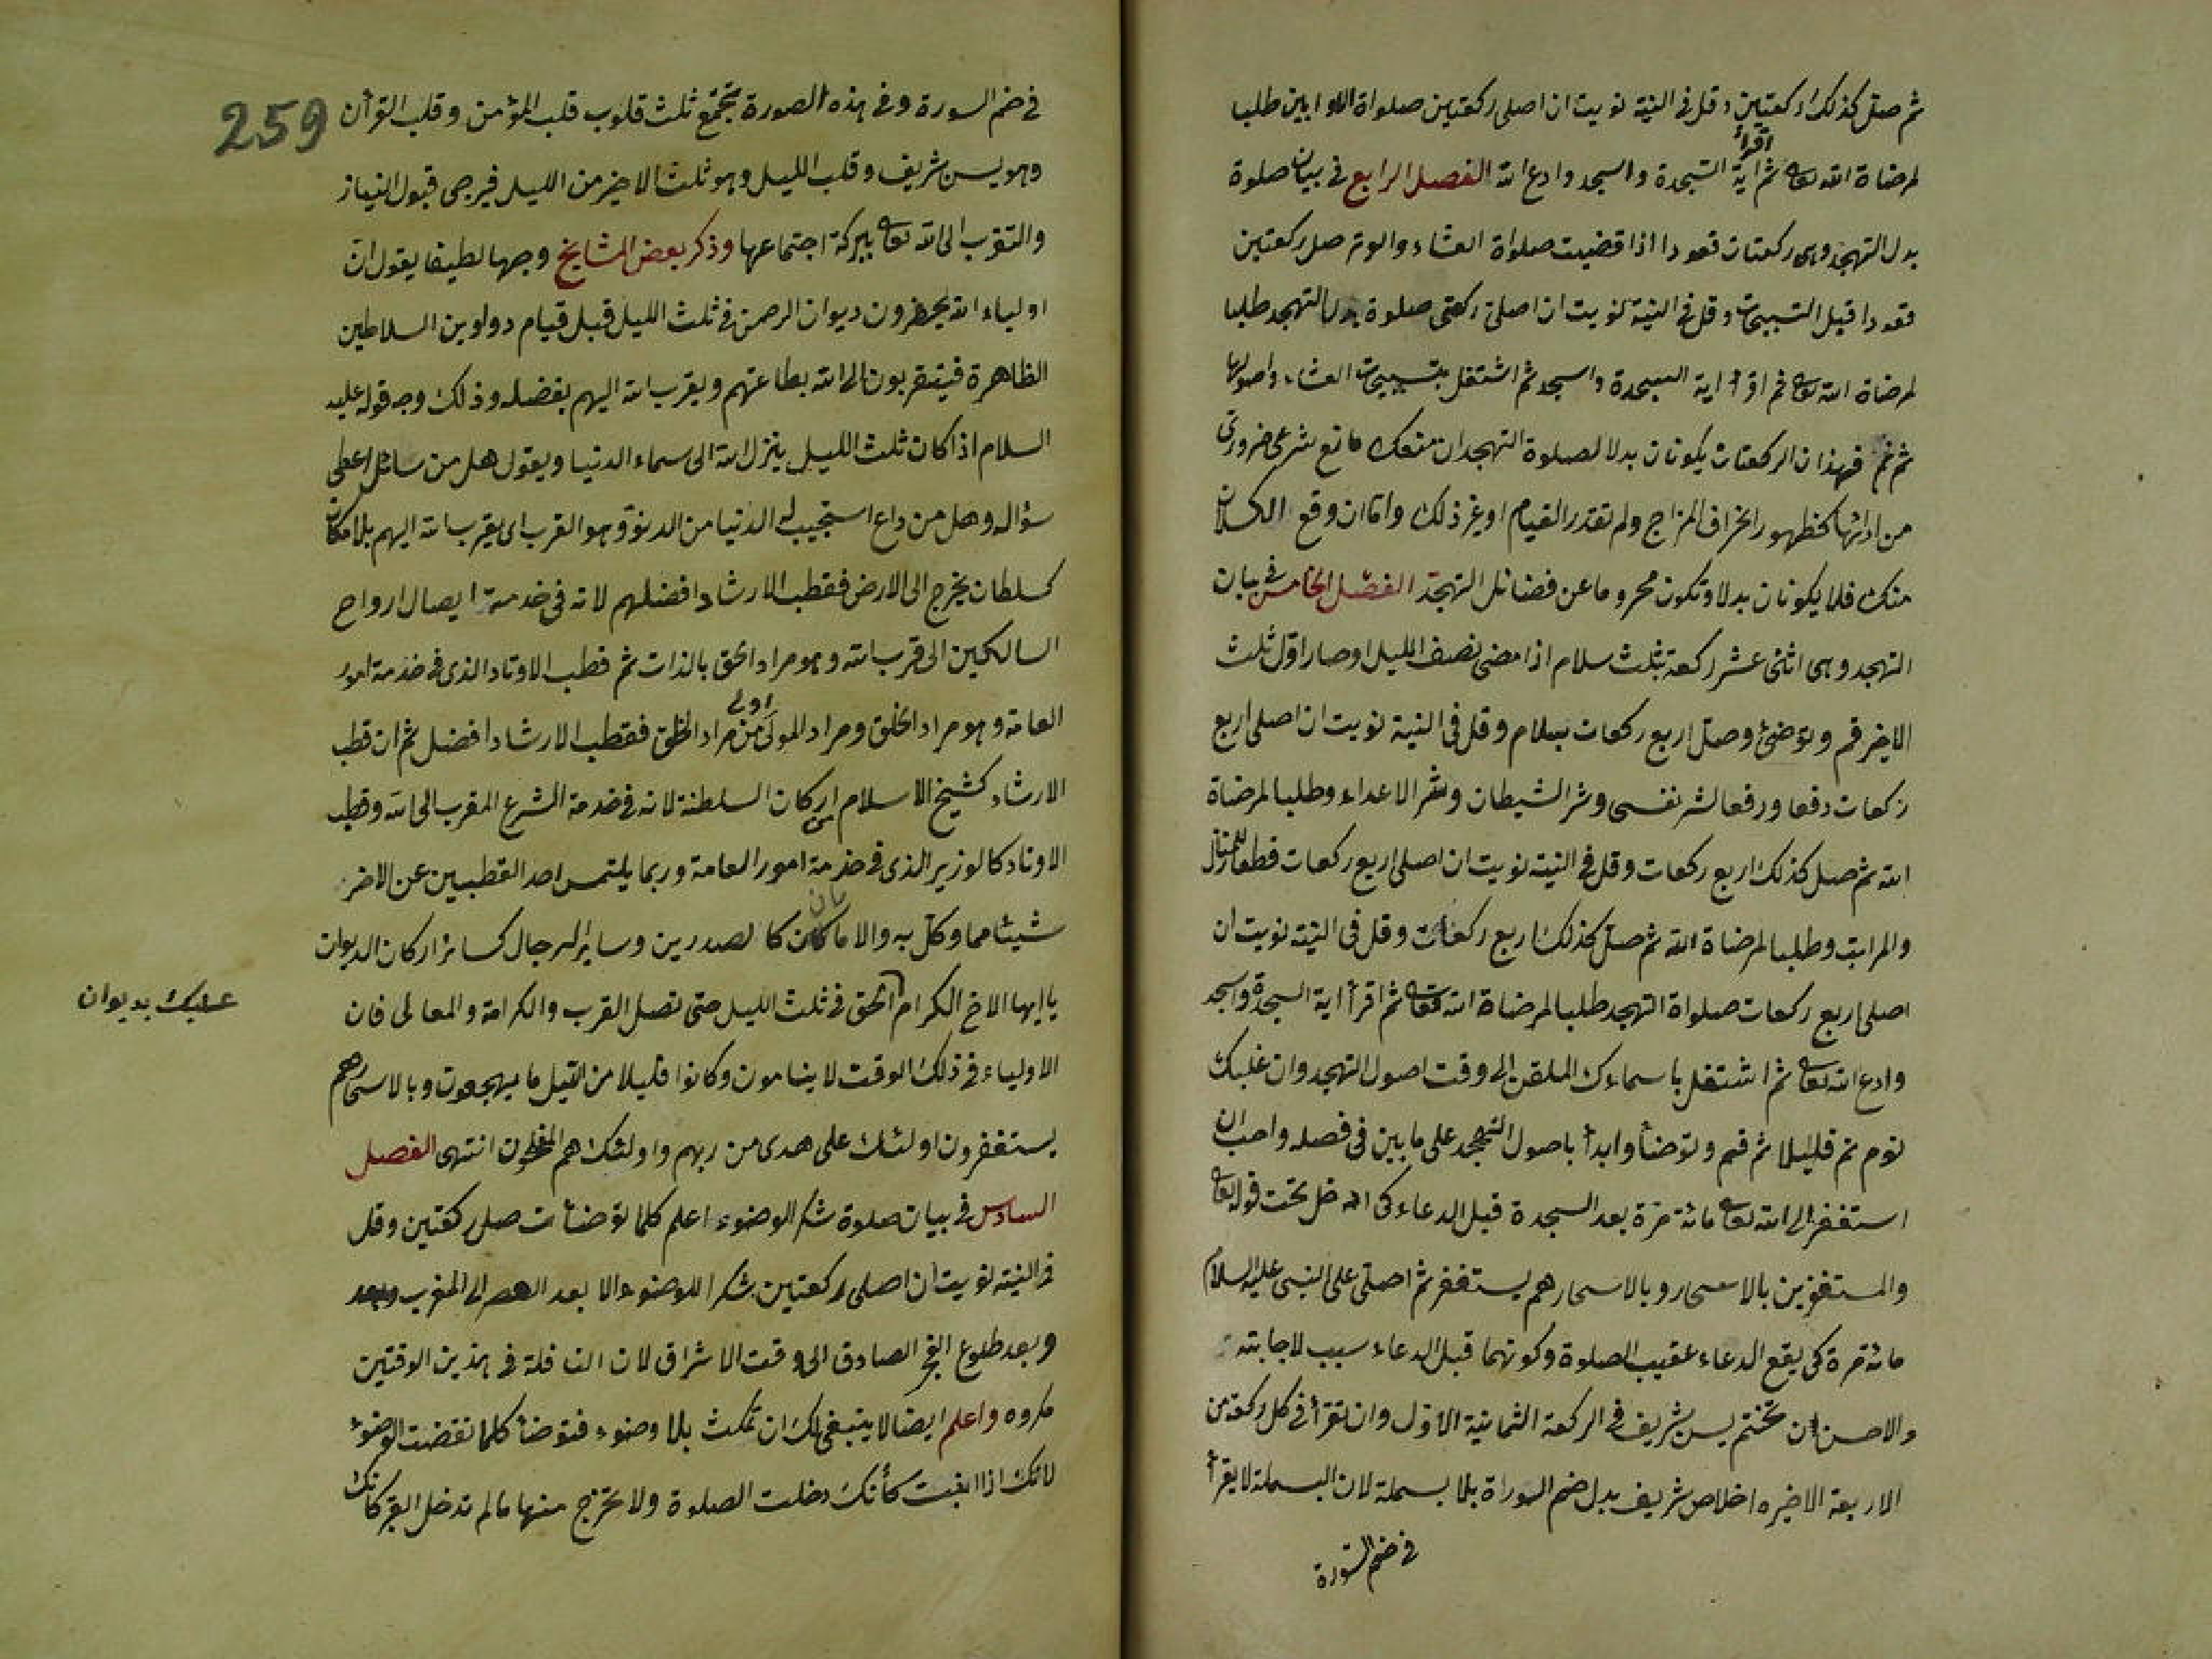 ثم صل كذلك ركعتين وقل فى النية نويت ان اصلى ركعتين صلواة الاوابين طلبا
لمرضاة الله تعالى ثم اقرأ اية السجدة واسجد وادع الله الفصل الرابع فى بيان صلوة
بدل التهجد وهى ركعتان قعودا اذا قضيت صلواة العشاء والوتر صل ركعتين
قعودا قبل التسبيحات وقل فى النية نويت ان اصلى ركعتى صلوة بدل التهجد طلبا
لمرضاة الله تعالى ثم اقرأ اية السجدة واسجد ثم اشتغل بتسبيحات العشاء واصولها
ثم نم فهذان الركعتان يكونان بدلا لصلوة التهجد ان منعك مانع شرعى ضرورى
من ادائها كظهور انحراف المزاج ولم تقدر القيام او غير ذلك واما ان وقع الكسلان
منك فلا يكونان بدلا وتكون محروما عن فضائل التهجد الفصل الخامس فى بيان
التهجد وهى اثنى عشر ركعة بثلث سلام اذا مضى نصف الليل او صار اول ثلث
الاخير قم وتوضئ وصل اربع ركعات بسلام وقل فى النية نويت ان اصلى اربع
ركعات دفعا ورفعا لشر نفسى وشر الشيطان وشر الاعداء وطلبا لمرضاة
الله ثم صل كذلك اربع ركعات وقل فى النية نويت ان اصلى اربع ركعات قطعا للمنازل
والمراتب وطلبا لمرضاة الله ثم صل كذلك اربع ركعات وقل فى النية نويت ان
اصلى اربع ركعات صلواة التهجد طلبا لمرضاة الله تعالى ثم اقرأ اية السجدة واسجد
وادع الله تعالى ثم اشتغل باسماءك الملقن الى وقت اصول التهجد وان غلبك
نوم نم قليلا ثم قم وتوضأ وابدأ باصول التهجد على ما بين فى فصله واحب ان
استغفر الى الله تعالى مائة مرة بعد السجدة قبل الدعاء كى ادخل تحت قوله تعالى
والمستغفرين بالاسحار وبالاسحارهم يستغفر ثم اصلى على النبى عليه السلام
مائة مرة كى يقع الدعاء عقيب الصلوة وكونهما قبل الدعاء سبب لاجابته
والاحسن ان تختم يس شريف فى الركعة الثمانية الاول وان تقرأ فى كل ركعة من
الاربعة الاخيره اخلاص شريف بدل ضم السوراة بلا بسملة لان البسملة لا يقرأ
فى ضم السورة
259
فى ضم السورة وفى هذه الصورة تجتمع ثلث قلوب قلب المؤمن وقلب القرأن
وهو يس شريف وقلب الليل وهو ثلث الاخير من الليل فيرجى قبول النياز
والتقرب الى الله تعالى ببركة اجتماعها وذكر بعض المشايخ وجها لطيفا يقول ان
اولياء الله يحضرون ديوان الرحمن فى ثلث الليل قبل قيام دولوين السلاطين
الظاهرة فيتقربون الى الله بطاعتهم ويقرب الله اليهم بفضله وذلك وجه قوله عليه
السلام اذا كان ثلث الليل ينزل الله الى سماء الدنيا ويقول هل من سائل اعطى
سؤاله وهل من داع استجيب له الدنيا من الدنوة وهو القرب اى يقرب الله اليهم بلا مكان
كسلطان يخرج الى الارض فقطب الارشاد افضلهم لانه فى خدمة ايصال ارواح
السالكين الى قرب الله وهو مراد الحق بالذات ثم قطب الاوتاد الذى فى خدمة امور
العامة وهو مراد الخلق ومراد المولى اولى من مراد الخلق فقطب الارشاد افضل ثم ان قطب
الارشاد كشيخ الاسلام من اركان السلطنة لانه فى خدمة الشرع المقرب الى الله وقطب
الاوتاد كالوزير الذى فى خدمة امور العامة وربما يلتمس احد القطبين عن الاخر
شيئا مما وكل به والامامان كالصدرين وساير الرجال كسائر اركان الديوان
يا ايها الاخ الكرام عليك بديوان الحق فى ثلث الليل حتى تصل القرب والكرامة والمعالى فان
الاولياء فى ذلك الوقت لا ينامون وكانوا قليلا من الليل ما يهجعون وبالاسحارهم
يستغفرون اولئك على هدى من ربهم واولئك هم المفلحون انتهى الفصل
السادس فى بيان صلوة شكر الوضوء اعلم كلما توضأت صل ركعتين وقل
فى النية نويت ان اصلى ركعتين شكرا للوضوء الا بعد العصر الى المغرب
وبعد طلوع الفجر الصادق الى وقت الاشراق لان النافلة فى هذين الوقتين
مكروه واعلم ايضا لا ينبغى لك ان تمكث بلا وضوء فتوضأ كلما نقضت الوضوء
لانك اذا ابقيت كأنك دخلت الصلوة ولا تخرج منها مالم تدخل القبر كانك